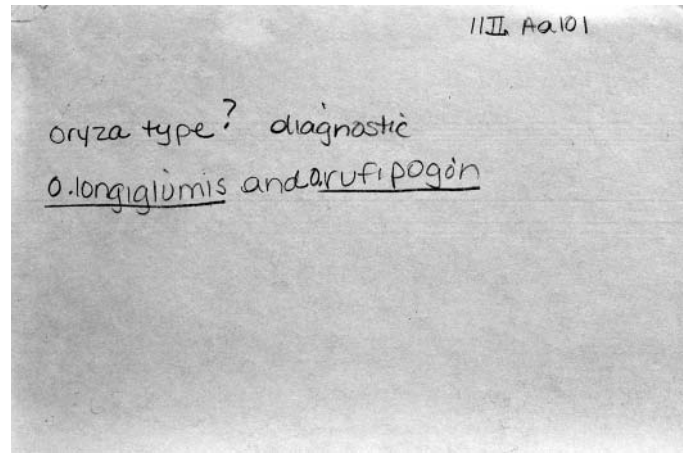 11II Aa101
oryza type? diagnostic
O.longiglumis and O.rufipogon